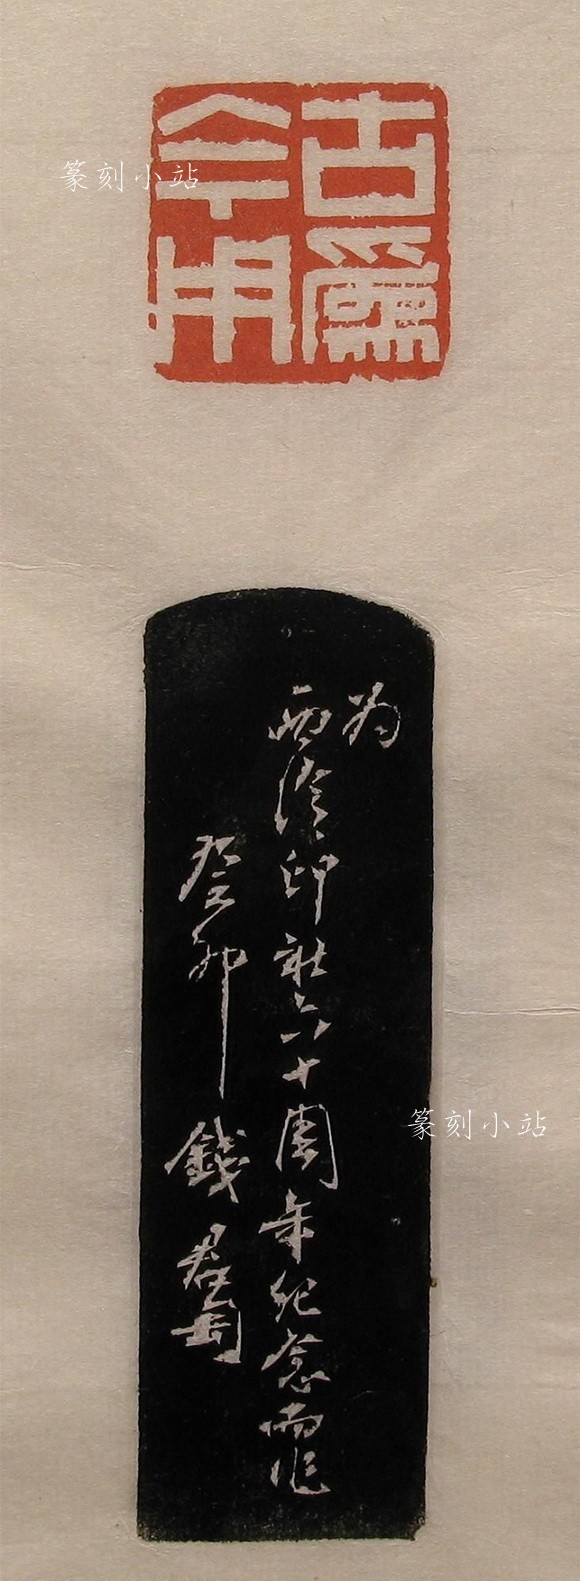 古為
今用
为
西泠印社六十周年纪念而作
癸卯 錢君匋
篆刻小站
篆刻小站